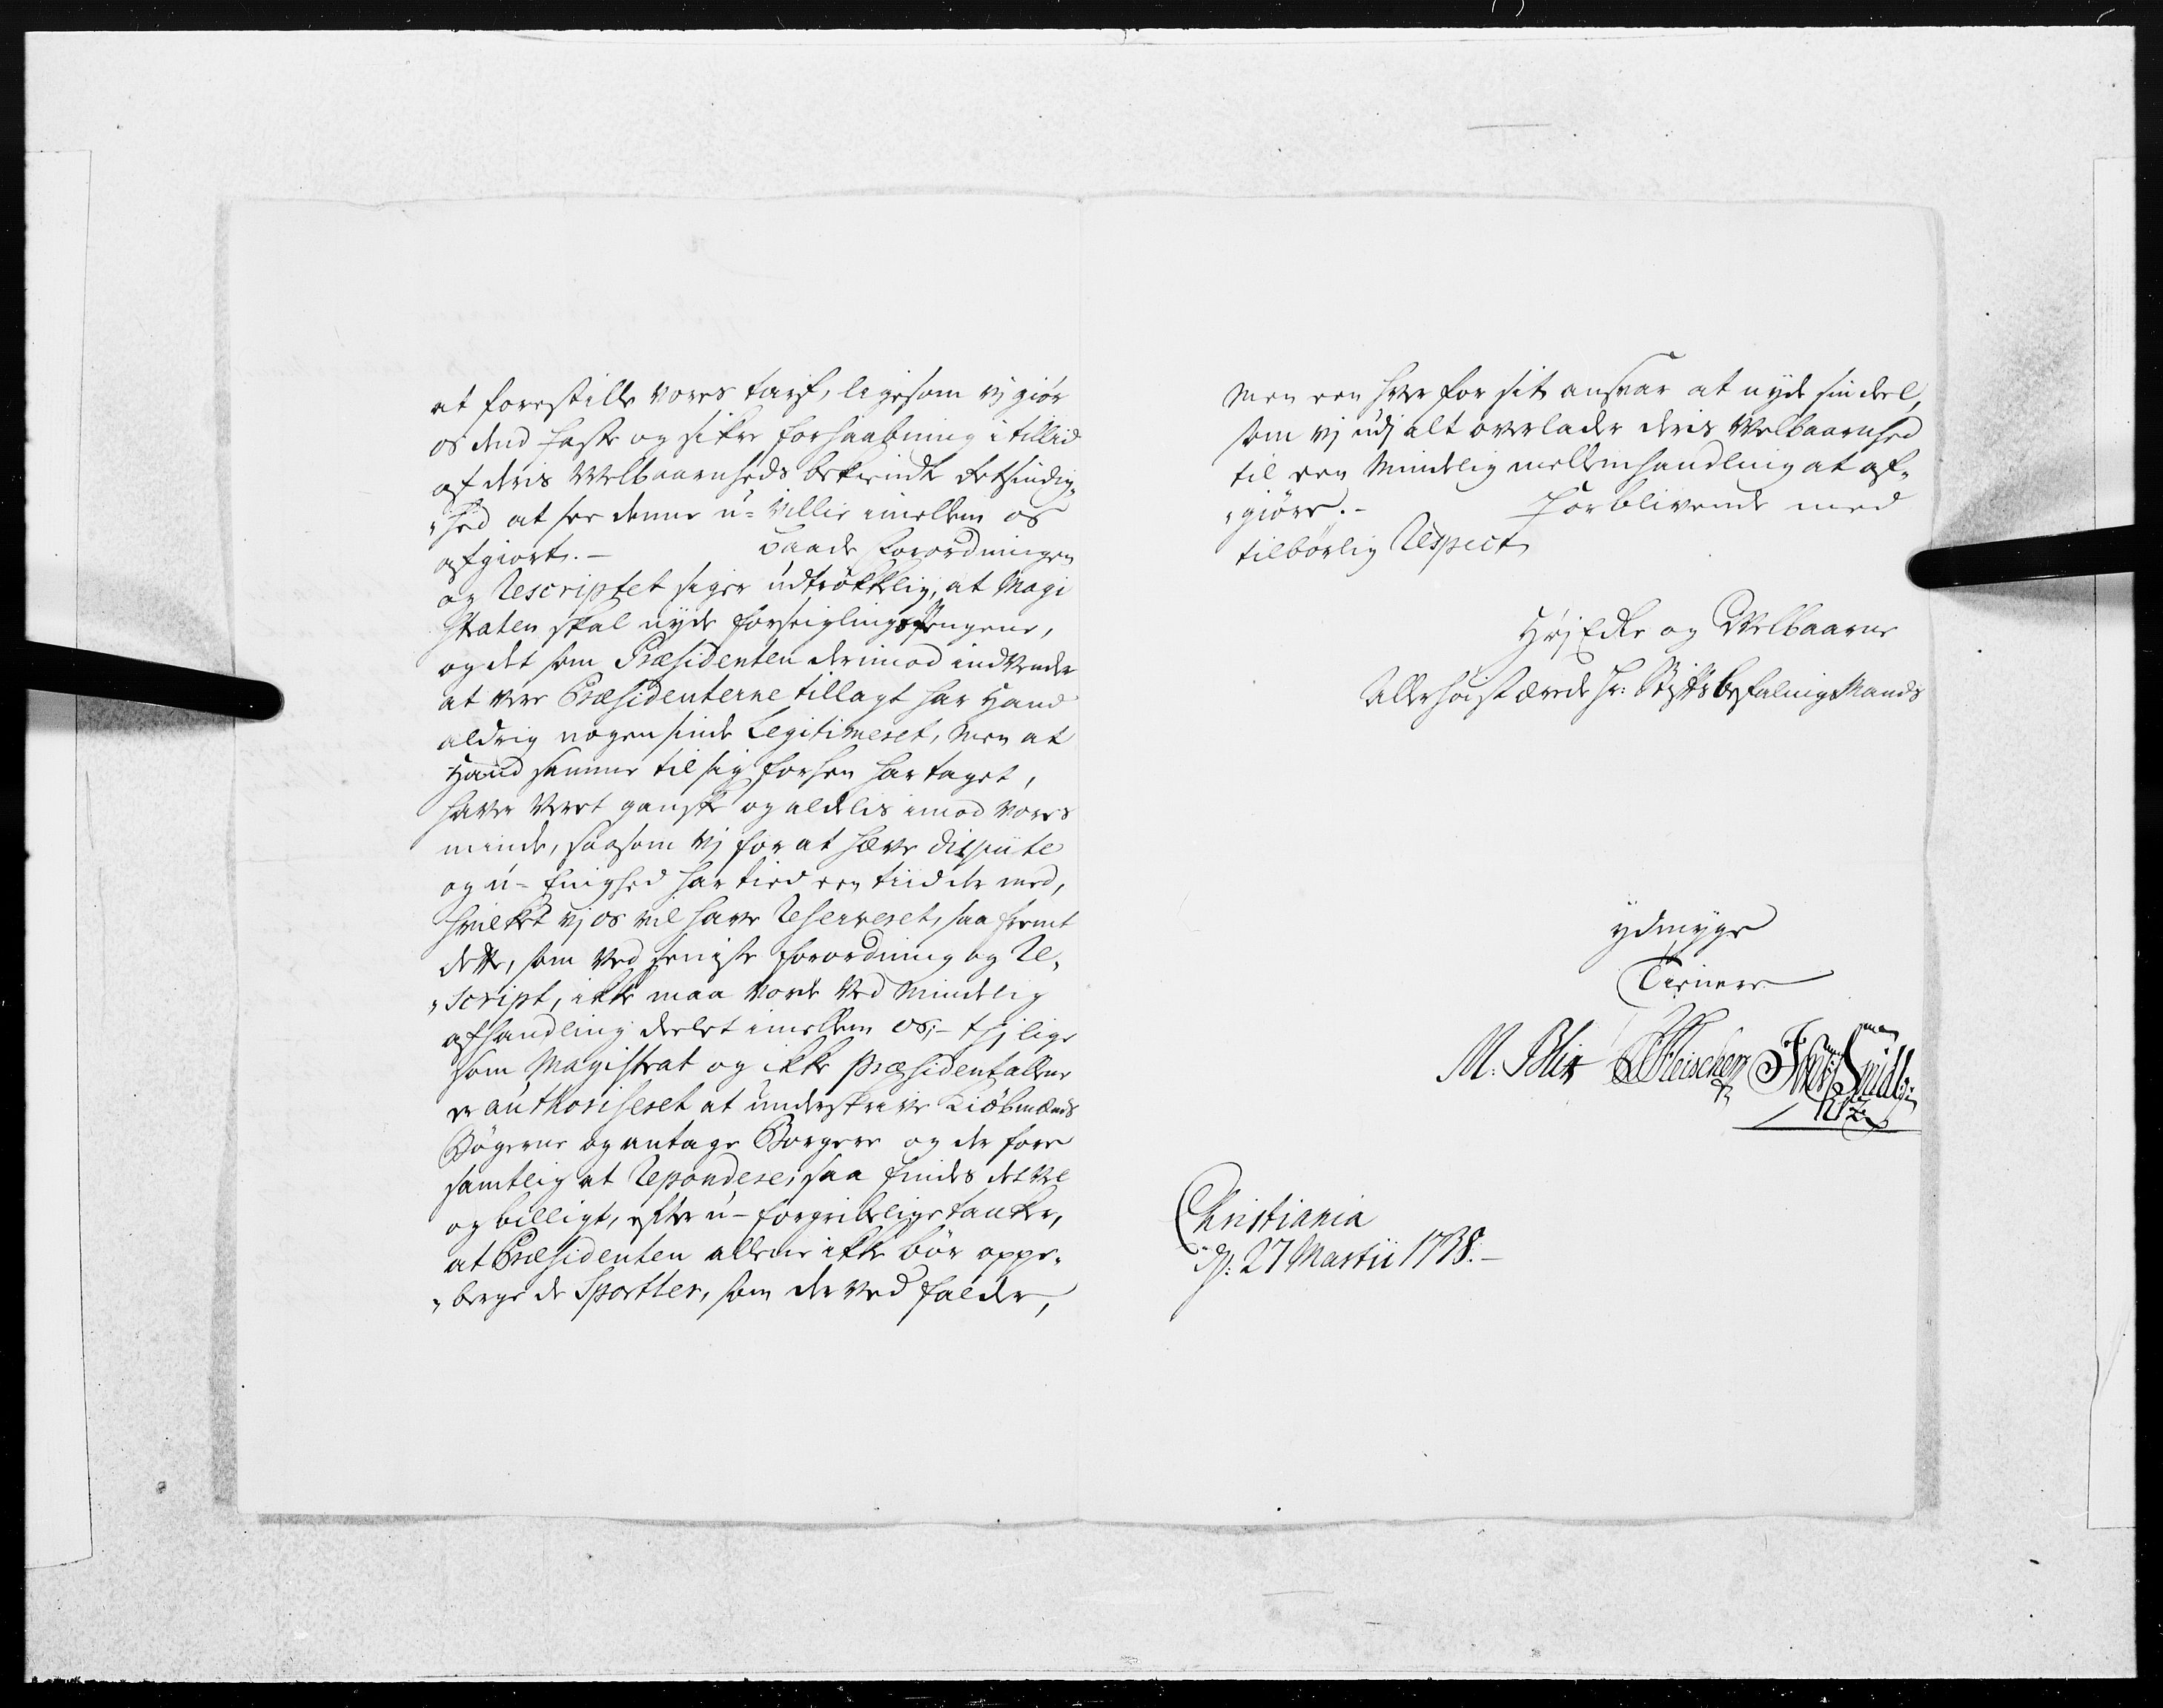 at forestille vores tarf, ligesom vj giör
os dend faste og sikre forhaabning i tillid
af deris Welbaarenheds bekiendte Retsindig„
„hed at see denne u=villie imellem os
afgiort. – Baade Forordningen
og Rescriptet siger udtrökkelig, at Magi
straten skal nyde forseiglings Pengene,
og det som Præsidenten derimod indvender
at være Præsidenterne tillagt har Hand
aldrig nogensinde Legitimeret, men at
Hand samme til sig forhen har taget,
haver været ganske og aldelis imod vores
minde, saasom vj for at hæve dispute
og u=Enighed har tied een tiid der med,
hvilket vj os vil have Reserveret, saa fremt
dette, som ved seniste forordning og Re„
„script, ikke maa vorde ved Mindelig
afhandling deelet imellem os; – thj lige
som Magistrat og ikke Præsident allene
er authoriseret at underskrive Kiöbmænds
Bögerne og antage Borgere og der fore
samtlig at Repondere; saa findes det vel
og billigt, efter u-forgribelige tanker,
at Præsidenten allene ikke bör oppe„
„berge de Sportler, som der ved falder,
Men een hver for sit ansvar at nyde sin deel,
som vj udj alt overlader deris Welbaarenhed
til een Mindelig mellemhandling at af„
„giöre. – Forblivende med
tilbörlig Respect
HöjEdle og Welbaarne
Allerhöistærede Hr: Stiftsbefalings Mands
ydmyge
Tienere
M. Blix Fleischer
Christiania
d: 27 Martii 1738. –